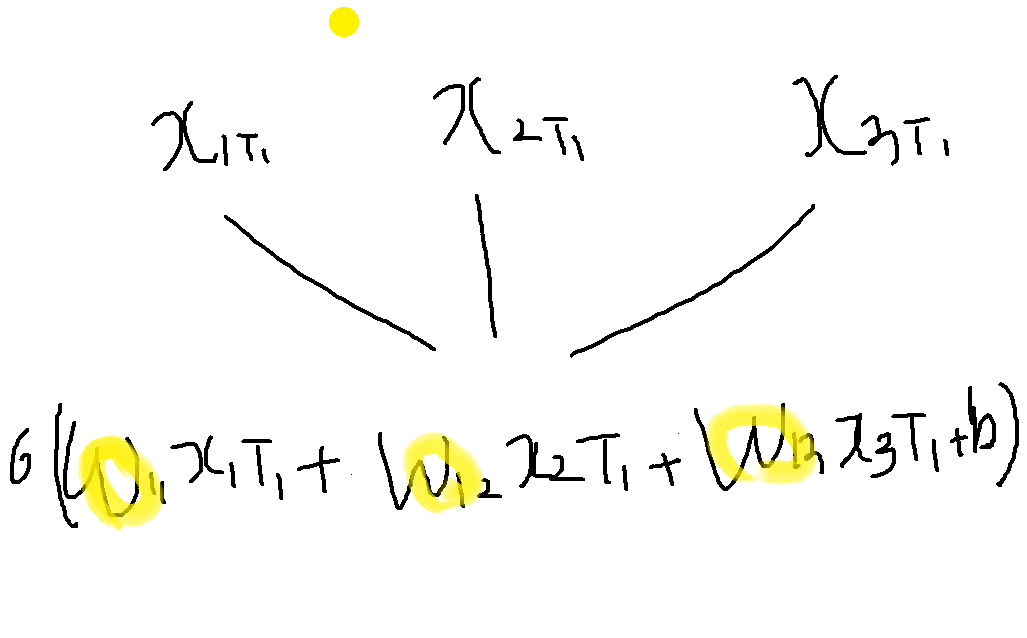 x₁T₁ x₂T₁ x₃T₁
σ(W₁₁x₁T₁ + W₁₂x₂T₁ + W₁₃x₃T₁+b)